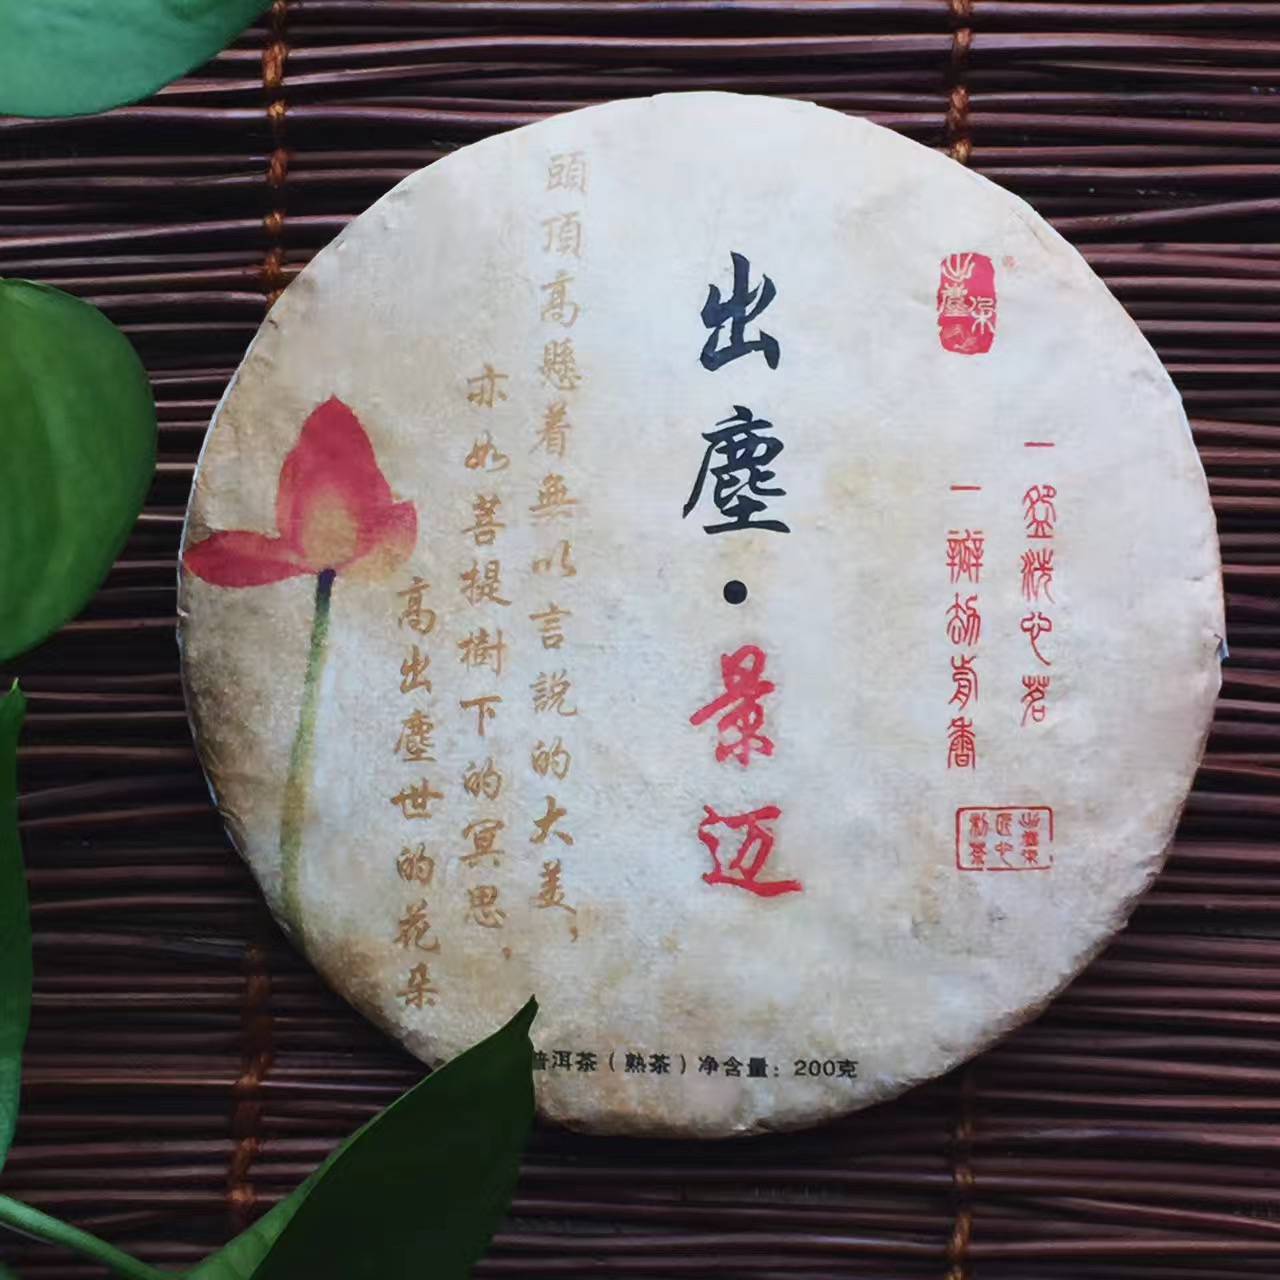 出塵朵
一盌洗心茗
一瓣劫背香
出塵朵
匠心
制茶
出塵·景迈
頭頂高懸着無以言說的大美，
亦如菩提樹下的冥思，
高出塵世的花朵
普洱茶（熟茶）净含量：200克